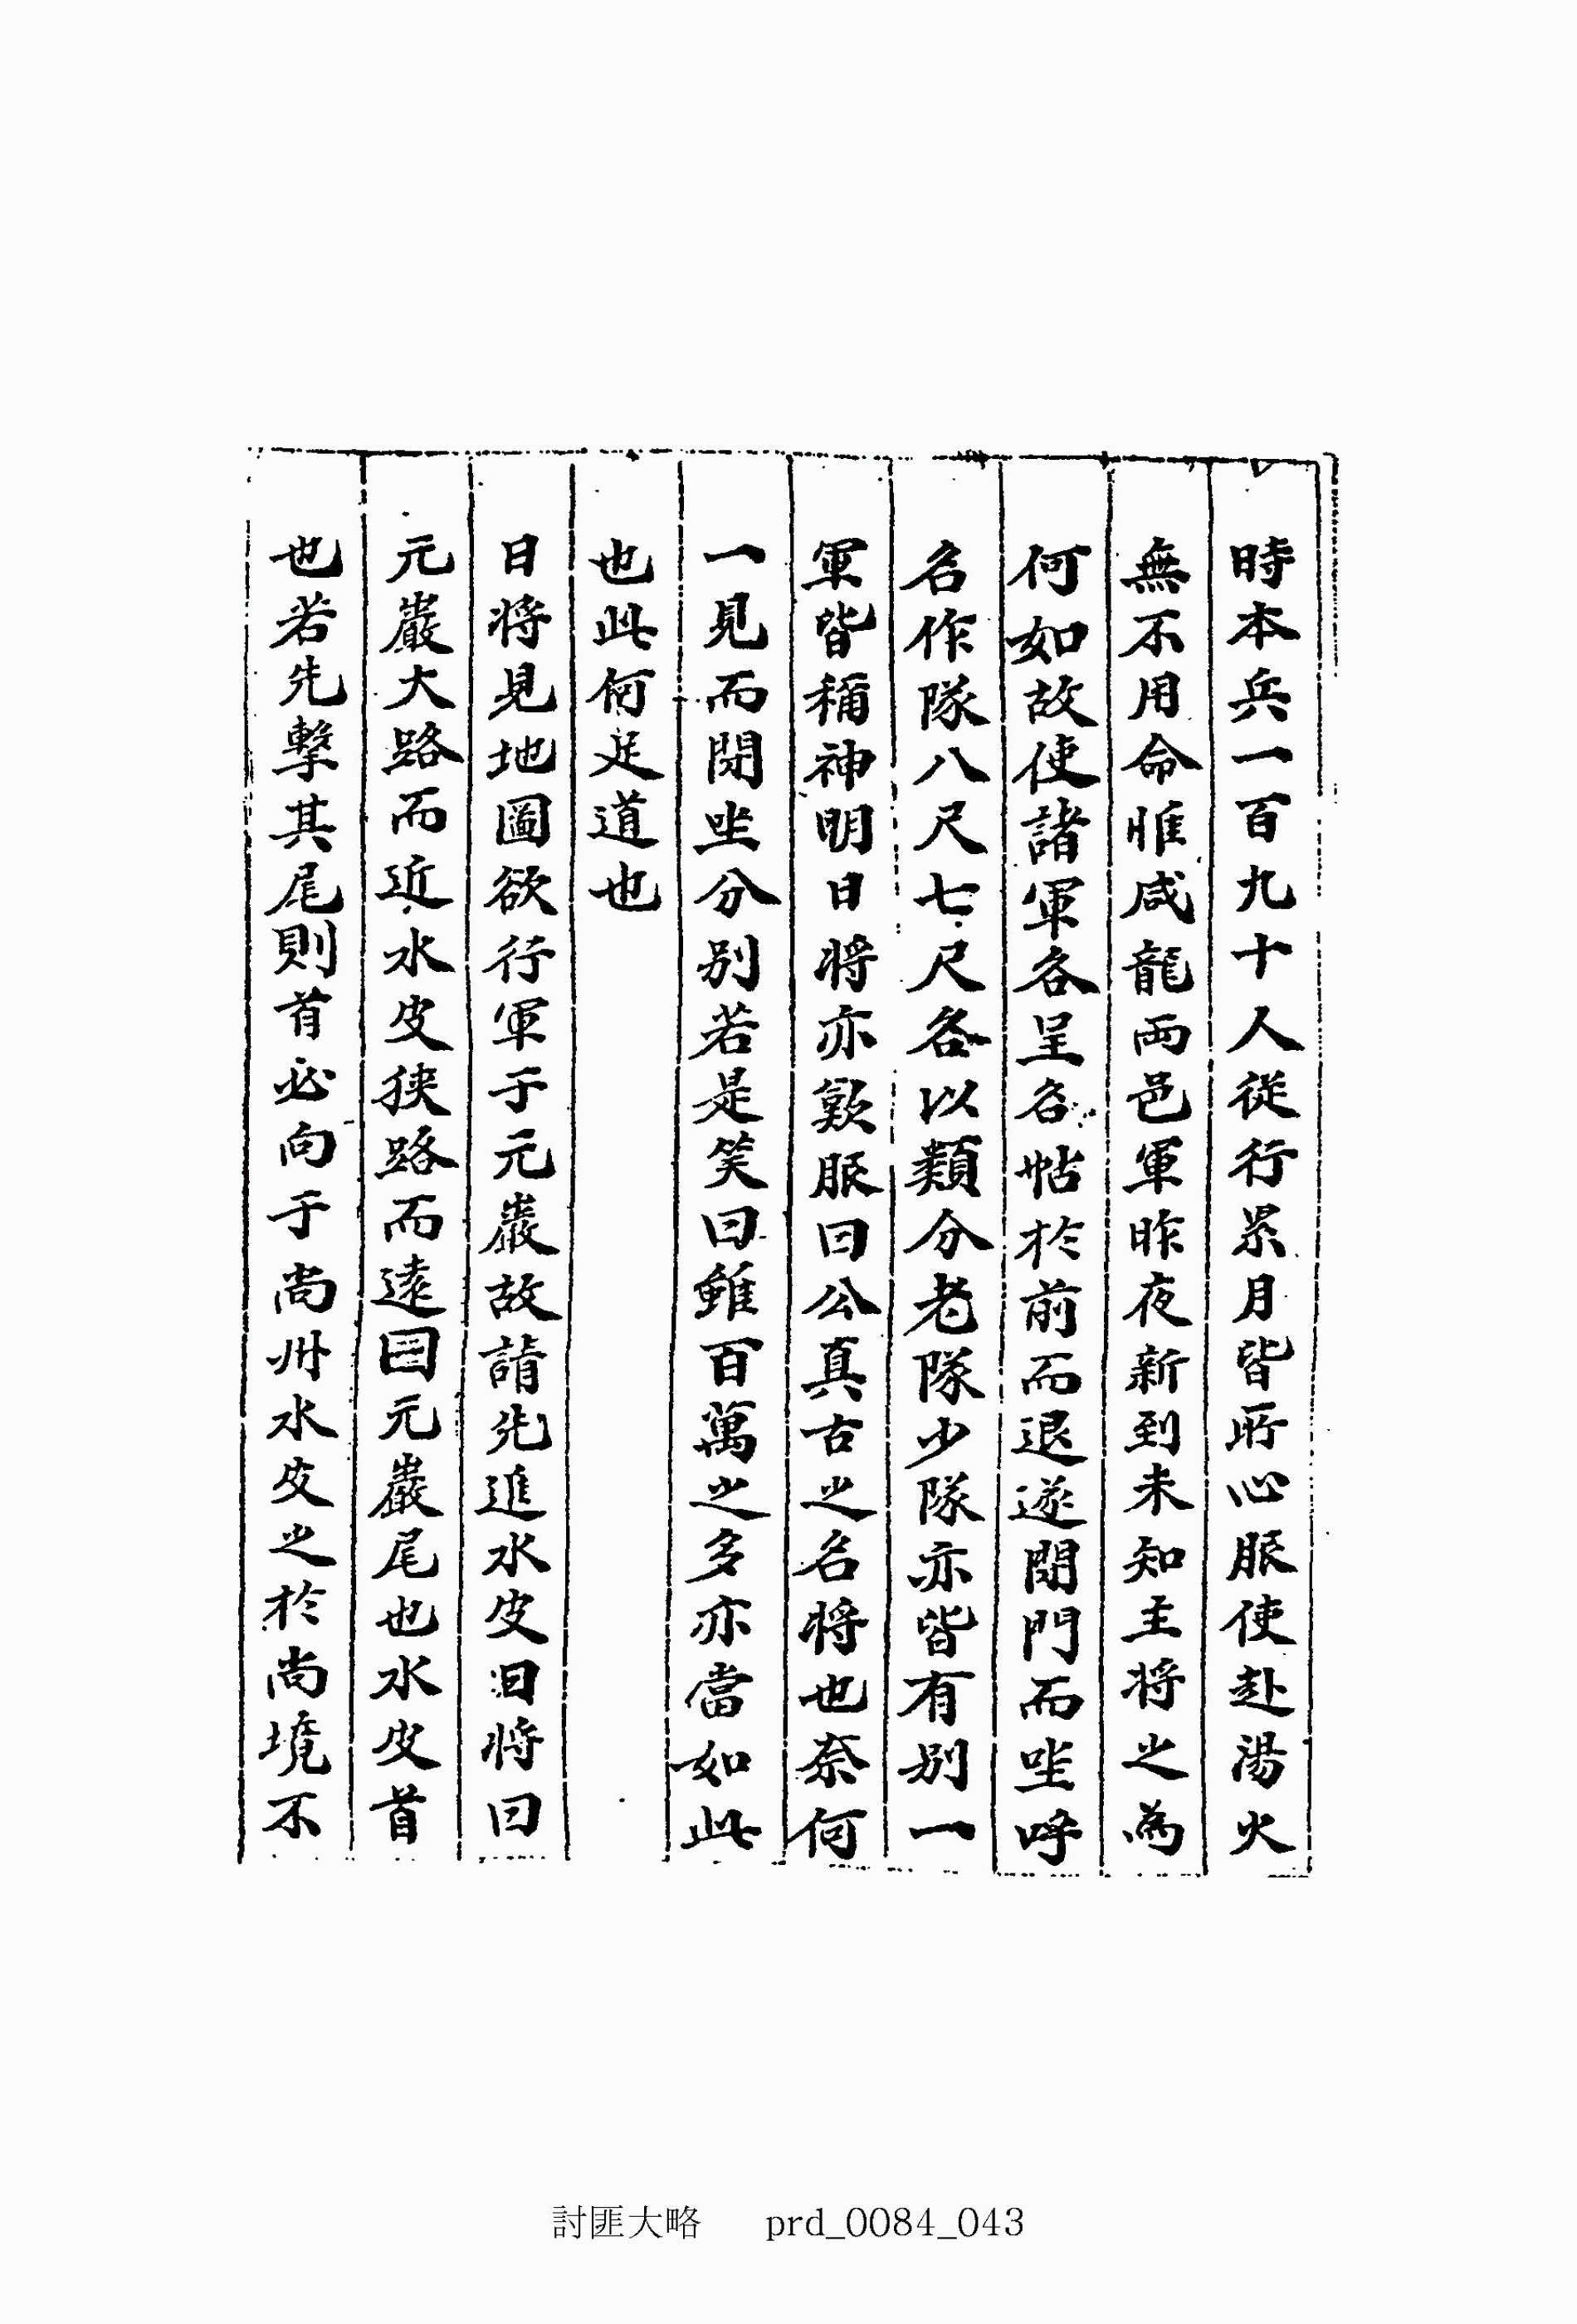 時本兵一百九十人從行累月皆所心服使赴湯火
無不用命惟咸龍兩邑軍昨夜新到未知主將之為
何如故使諸軍各呈名帖於前而退遂閉門而坐呼
名作隊八尺七尺各以類分老隊少隊亦皆有別一
軍皆稱神明日將亦歎服曰公真古之名將也奈何
一見而閉坐分別若是笑曰雖百萬之多亦當如此
也此何足道也
日將見地圖欲行軍于元巖故請先進水皮日將曰
元巖大路而近水皮狹路而遠因元巖尾也水皮首
也若先擊其尾則首必向于尚州水皮之於尚境不
討匪大略 prd_0084_043